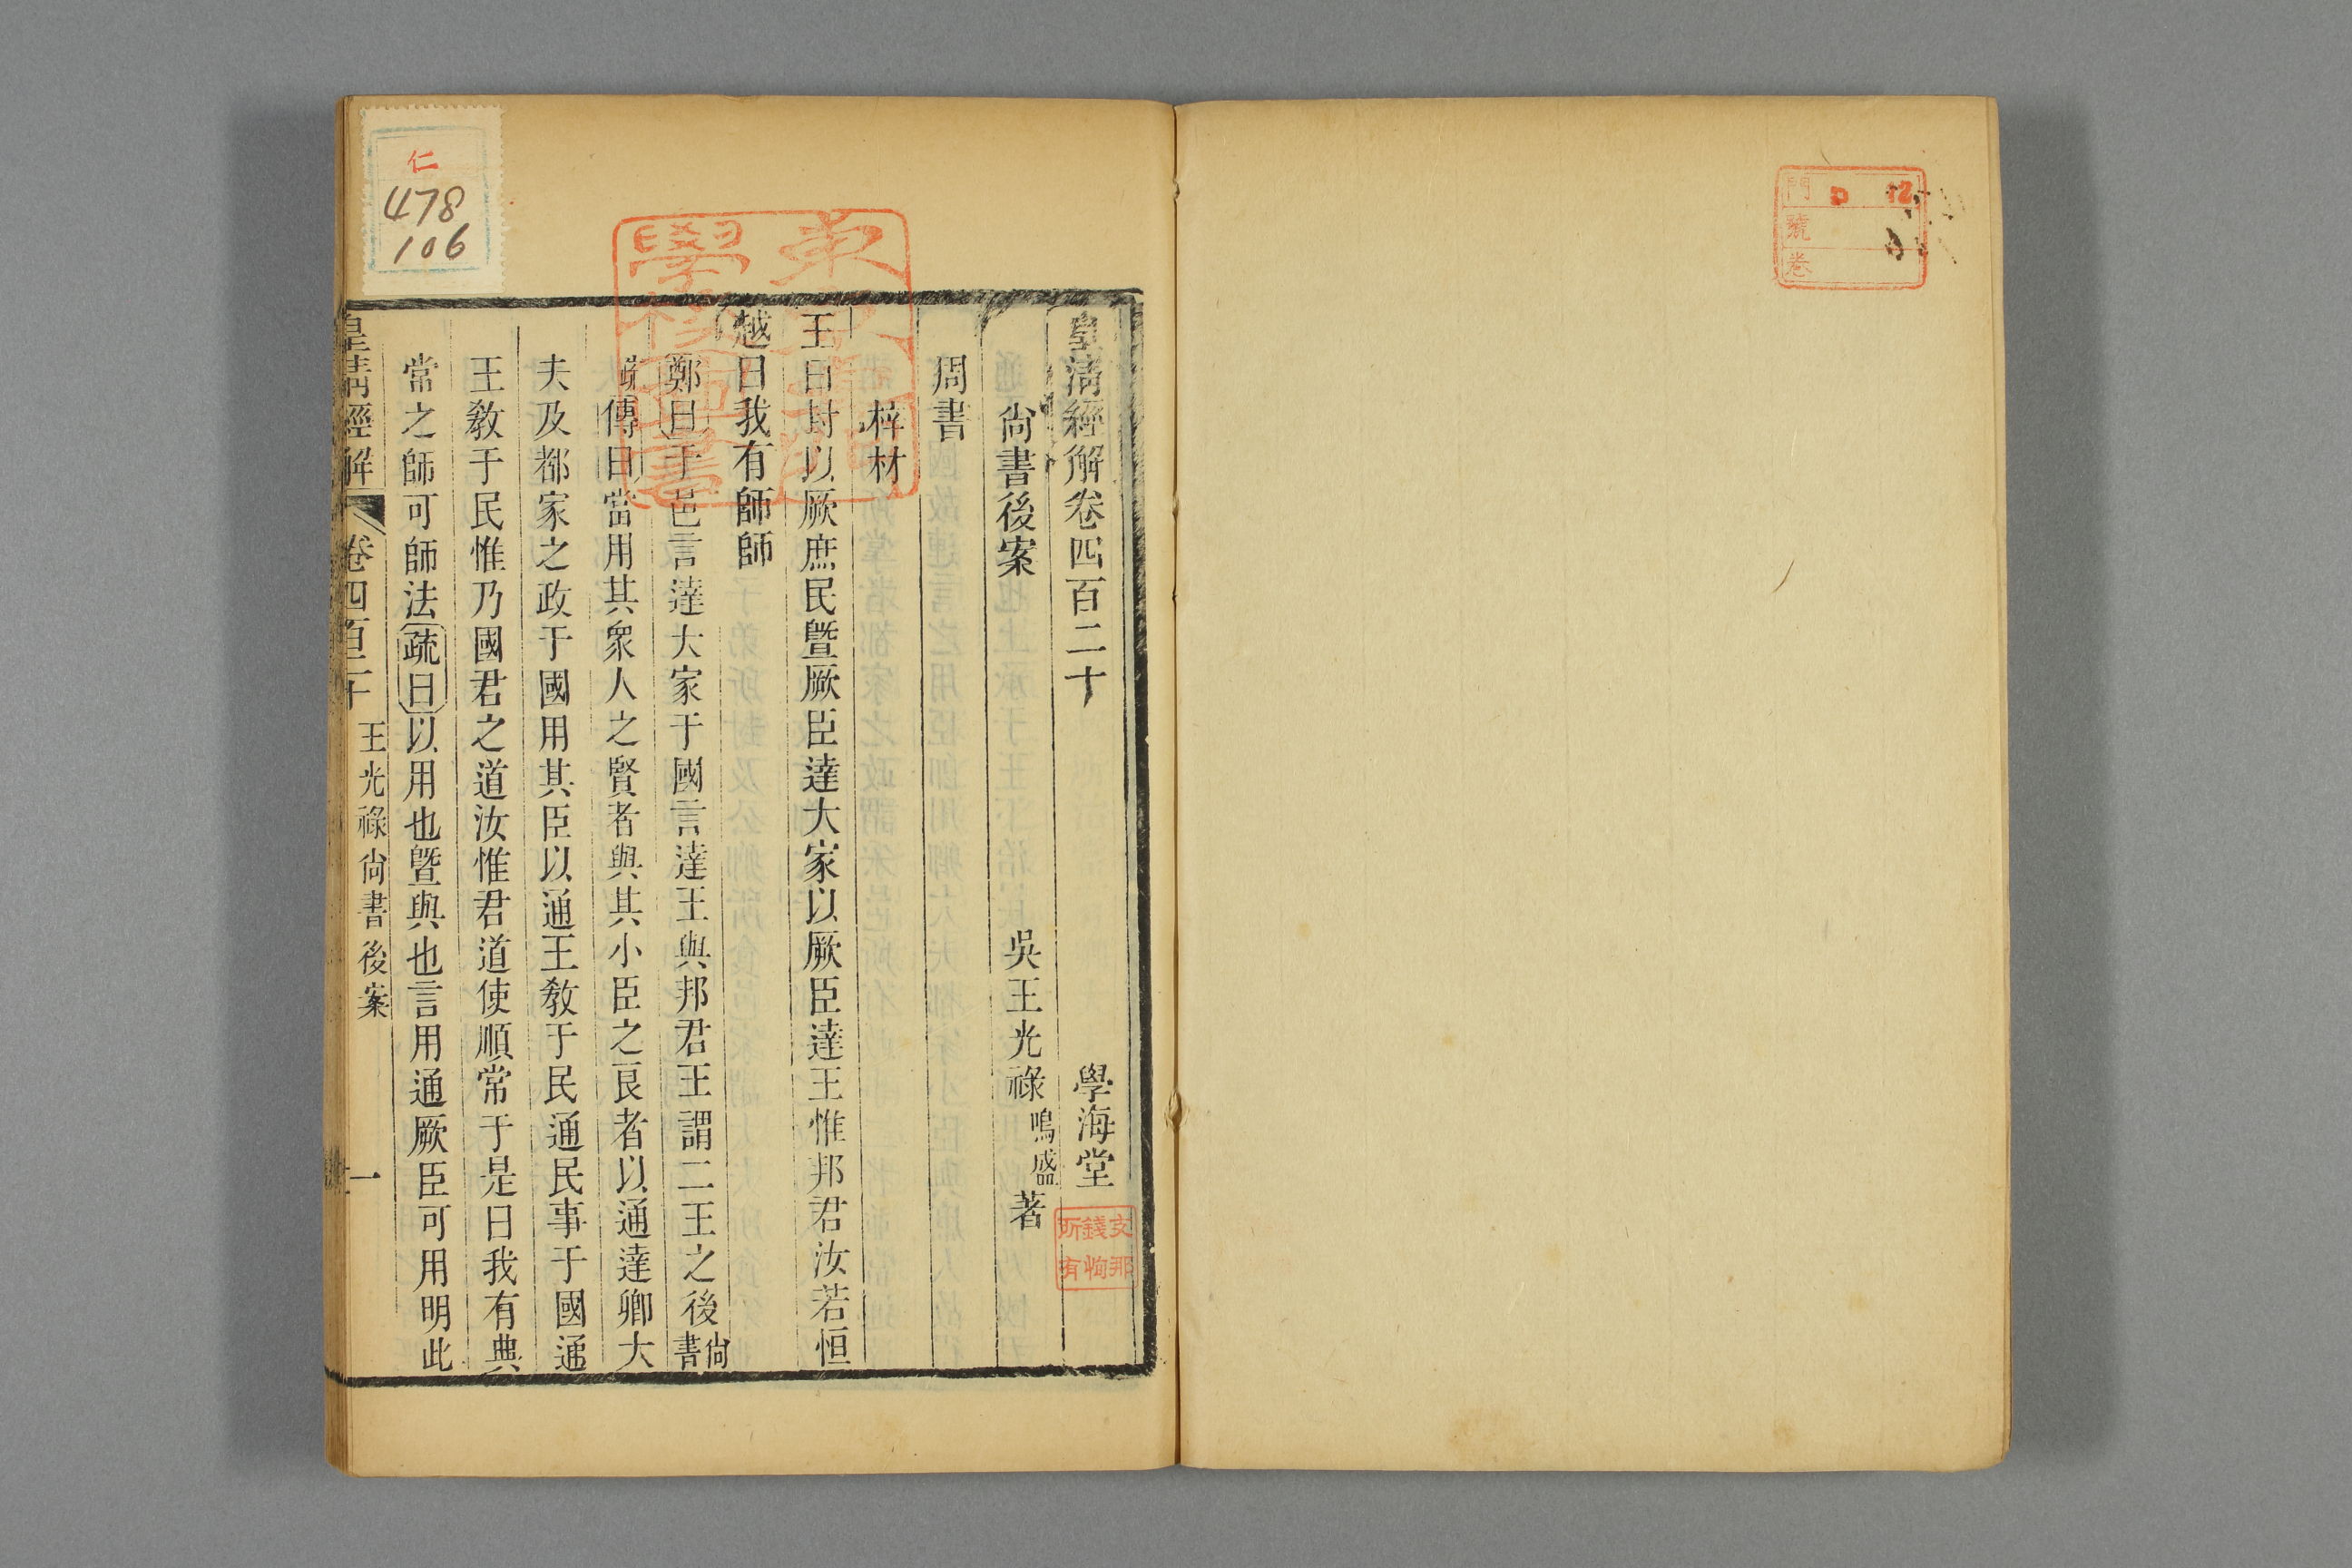 門
號
卷
皇清經解卷四百二十
學海堂
尙書後案
吳王光祿鳴盛著
周書
梓材
王曰封以厥庶民曁厥臣達大家以厥臣達王惟邦君汝若恒
越曰我有師師
鄭曰于邑言達大家于國言達王與邦君王謂二王之後尙書
傳曰當用其衆人之賢者與其小臣之良者以通達卿大
夫及都家之政于國用其臣以通王敎于民通民事于國通
王敎于民惟乃國君之道汝惟君道使順常于是曰我有典
常之師可師法疏曰以用也曁與也言用通厥臣可用明此
皇清經解
卷四百二十
王光祿尙書後案
一
仁
478
106